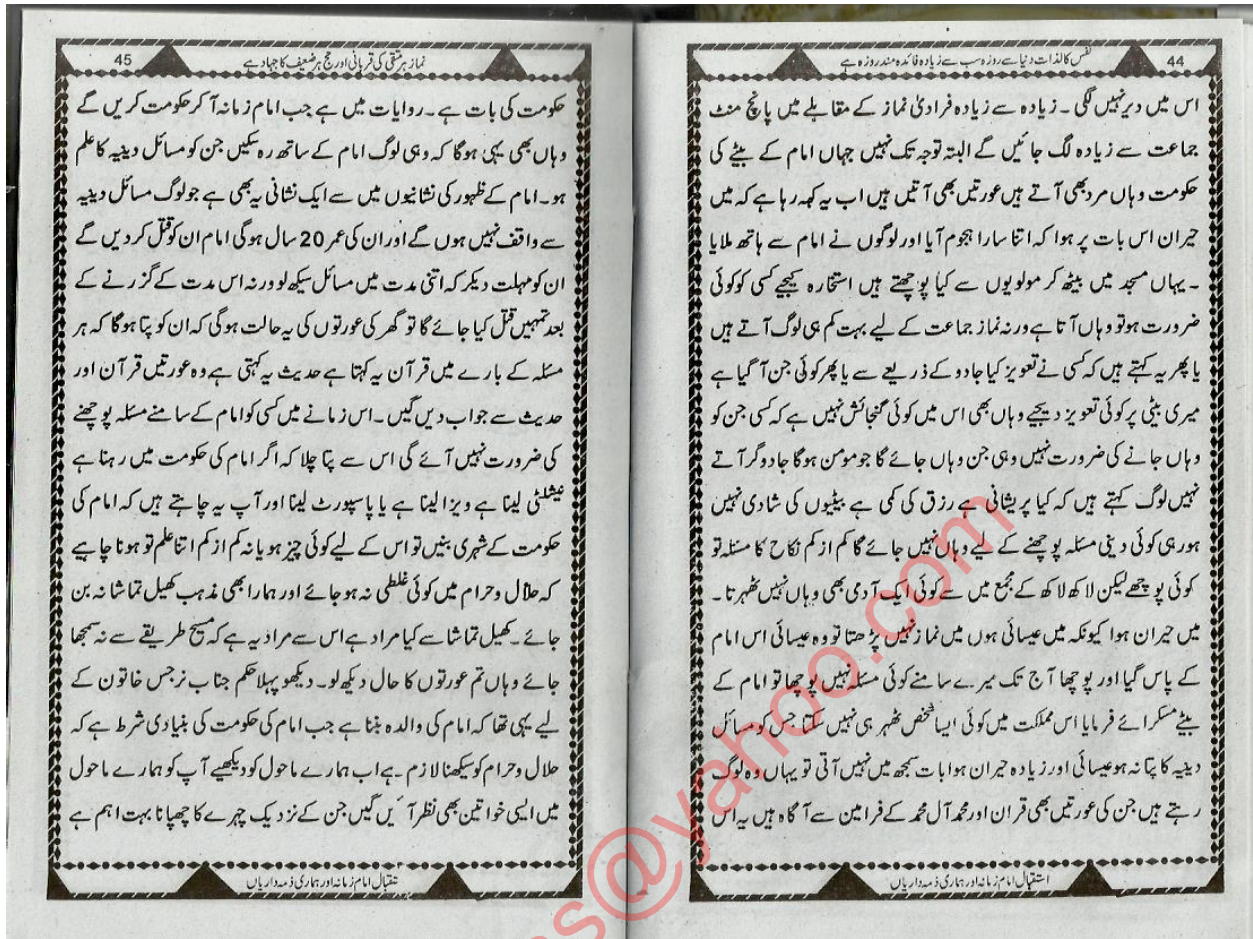 44
نفس کا لذات دنیا سے روزہ سب سے زیادہ فائدہ مند روزہ ہے
اس میں دیر نہیں لگی ۔ زیادہ سے زیادہ فرادیٰ نماز کے مقابلے میں پانچ منٹ
جماعت سے زیادہ لگ جائیں گے البتہ توجہ تک نہیں جہاں امام کے بیٹے کی
حکومت وہاں مرد بھی آتے ہیں عورتیں بھی آتیں ہیں اب یہ کہہ رہا ہے کہ میں
حیران اس بات پر ہوا کہ اتنا سارا ہجوم آیا اور لوگوں نے امام سے ہاتھ ملایا
۔ یہاں مسجد میں بیٹھ کر مولویوں سے کیا پوچھتے ہیں استخارہ کیجیے کسی کو کوئی
ضرورت ہو تو وہاں آتا ہے ورنہ نماز جماعت کے لیے بہت کم ہی لوگ آتے ہیں
یا پھر یہ کہتے ہیں کہ کسی نے تعویز کیا جادو کے ذریعے سے یا پھر کوئی جن آ گیا ہے
میری بیٹی پر کوئی تعویز دیجیے وہاں بھی اس میں کوئی گنجائش نہیں ہے کہ کسی جن کو
وہاں جانے کی ضرورت نہیں وہی جن وہاں جائے گا جو مومن ہوگا جادوگر آتے
نہیں لوگ کہتے ہیں کہ کیا پریشانی ہے رزق کی کمی ہے بیٹیوں کی شادی نہیں
ہورہی کوئی دینی مسئلہ پوچھنے کے لیے وہاں نہیں جائے گا کم از کم نکاح کا مسئلہ تو
کوئی پوچھے لیکن لاکھ لاکھ کے مجمع میں سے کوئی ایک آدمی بھی وہاں نہیں ٹھہرتا ۔
میں حیران ہوا کیونکہ میں عیسائی ہوں میں نماز نہیں پڑھتا تو وہ عیسائی اس امام
کے پاس گیا اور پوچھا آج تک میرے سامنے کوئی مسئلہ نہیں پوچھا تو امام کے
بیٹے مسکرائے فرمایا اس مملکت میں کوئی ایسا شخص ٹھہر ہی نہیں سکتا جس کو مسائل
دینیہ کا پتا نہ ہو عیسائی اور زیادہ حیران ہوا بات سمجھ میں نہیں آتی تو یہاں وہ لوگ
رہتے ہیں جن کی عورتیں بھی قران اور محمد آل محمد کے فرامین سے آگاہ ہیں یہ اس
استقبال امام زمانہ اور ہماری ذمہ داریاں
45
نماز ہر متقی کی قربانی اور حج ہر ضعیف کا جہاد ہے
حکومت کی بات ہے ۔ روایات میں ہے جب امام زمانہ آ کر حکومت کریں گے
وہاں بھی یہی ہوگا کہ وہی لوگ امام کے ساتھ رہ سکیں جن کو مسائل دینیہ کا علم
ہو ۔ امام کے ظہور کی نشانیوں میں سے ایک نشانی یہ بھی ہے جو لوگ مسائل دینیہ
سے واقف نہیں ہوں گے اور ان کی عمر 20 سال ہوگی امام ان کو قتل کر دیں گے
ان کو مہلت دیکر کہ اتنی مدت میں مسائل سیکھ لو ورنہ اس مدت کے گزرنے کے
بعد تمہیں قتل کیا جائے گا تو گھر کی عورتوں کی یہ حالت ہوگی کہ ان کو پتا ہوگا کہ ہر
مسئلہ کے بارے میں قرآن یہ کہتا ہے حدیث یہ کہتی ہے وہ عورتیں قرآن اور
حدیث سے جواب دیں گیں ۔ اس زمانے میں کسی کو امام کے سامنے مسئلہ پوچھنے
کی ضرورت نہیں آئے گی اس سے پتا چلا کہ اگر امام کی حکومت میں رہنا ہے
نیشلٹی لینا ہے ویزا لینا ہے یا پاسپورٹ لینا اور آپ یہ چاہتے ہیں کہ امام کی
حکومت کے شہری بنیں تو اس کے لیے کوئی چیز ہو یا نہ کم از کم اتنا علم تو ہونا چاہیے
کہ حلال و حرام میں کوئی غلطی نہ ہو جائے اور ہمارا بھی مذہب کھیل تماشا نہ بن
جائے ۔ کھیل تماشا سے کیا مراد ہے اس سے مراد یہ ہے کہ صحیح طریقے سے نہ سمجھا
جائے وہاں تم عورتوں کا حال دیکھ لو ۔ دیکھو پہلا حکم جناب نرجس خاتون کے
لیے یہی تھا کہ امام کی والدہ بننا ہے جب امام کی حکومت کی بنیادی شرط ہے کہ
حلال و حرام کو سیکھنا لازم ہے اب ہمارے ماحول کو دیکھیے آپ کو ہمارے ماحول
میں ایسی خواتین بھی نظر آئیں گیں جن کے نزدیک چہرے کا چھپانا بہت اہم ہے
ستقبال امام زمانہ اور ہماری ذمہ داریاں
s@yahoo.com